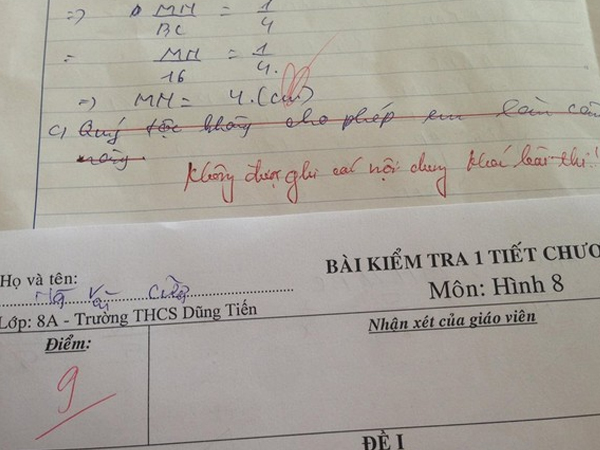 => MN/BC = 1/4
= MN/16 = 1/4.
=> MN = 4.(cm)
c) Quý tộc không cho phép em làm câu
này.
Không được ghi các nội dung khác bài thi!
Họ và tên:
BÀI KIỂM TRA 1 TIẾT CHƯƠ
Môn: Hình 8
Lớp: 8A - Trường THCS Dũng Tiến
Điểm:
Nhận xét của giáo viên
9
ĐỀ I